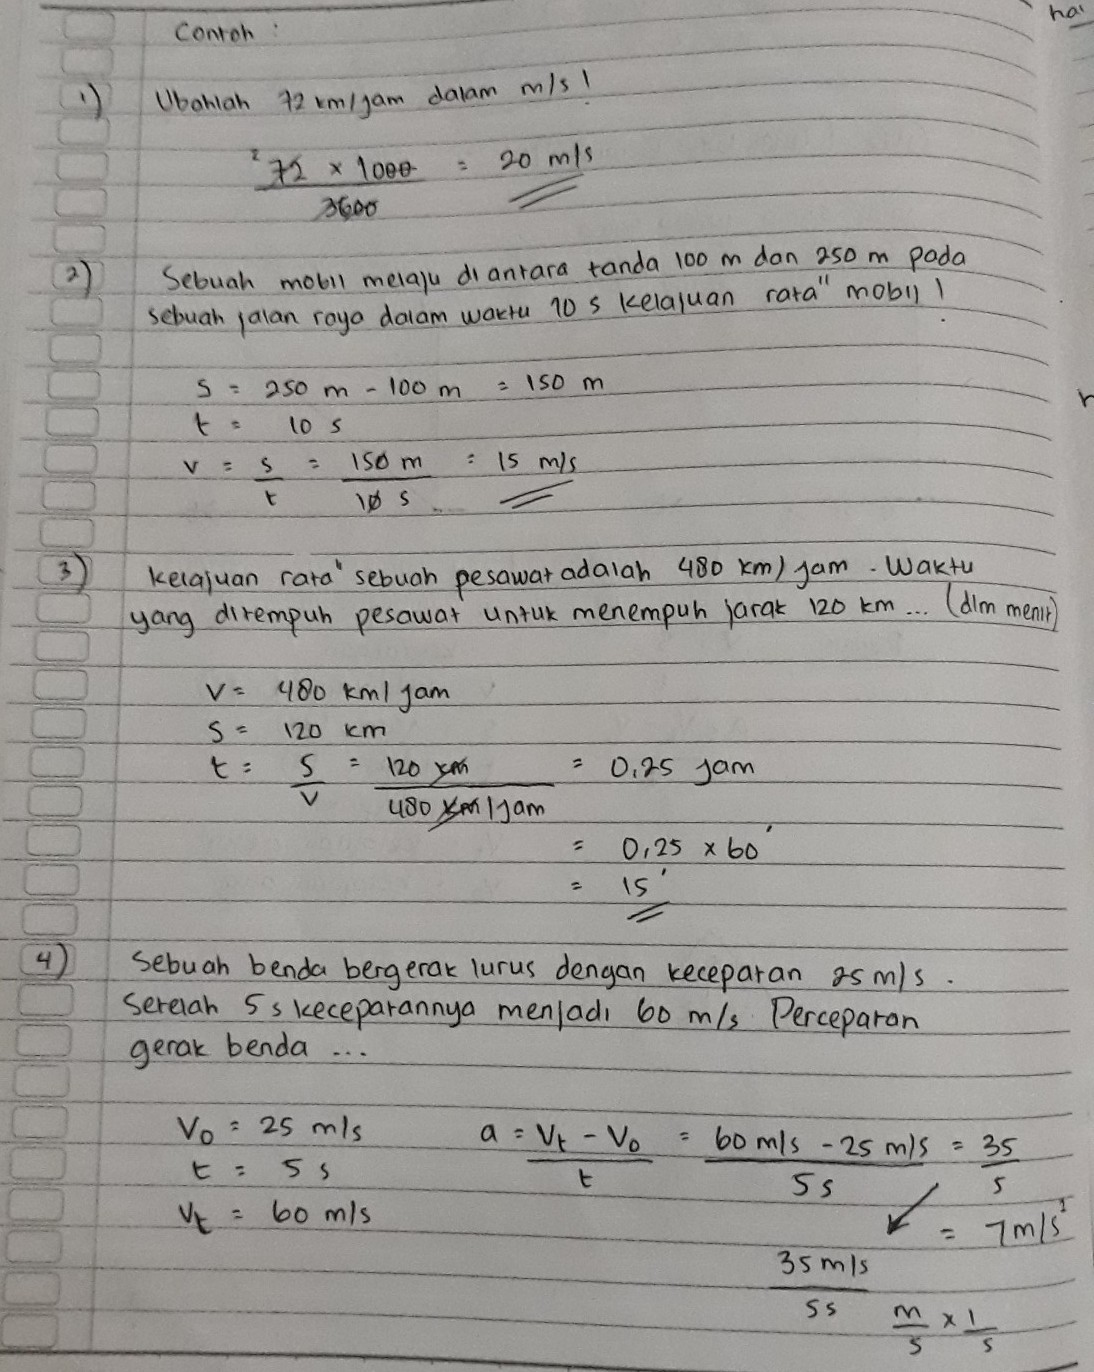 Contoh :
1) Ubahlah 72 km/jam dalam m/s !
²72 x 1000 = 20 m/s
3600
2) Sebuah mobil melaju diantara tanda 100 m dan 250 m pada
sebuah jalan raya dalam waktu 10 s kelajuan rata" mobil !
s = 250 m - 100 m = 150 m
t = 10 s
v = s = 150 m = 15 m/s
t 10 s
3) Kelajuan rata" sebuah pesawat adalah 480 km/jam. Waktu
yang ditempuh pesawat untuk menempuh jarak 120 km ... (dlm menit)
V = 480 km/jam
S = 120 km
t = S = 120 km = 0,25 jam
V 480 km/jam
= 0,25 x 60'
= 15'
4) Sebuah benda bergerak lurus dengan kecepatan 25 m/s.
Setelah 5 s kecepatannya menjadi 60 m/s. Percepatan
gerak benda ...
V₀ = 25 m/s a = Vt - V₀ = 60 m/s - 25 m/s = 35
t = 5 s t 5 s 5
Vt = 60 m/s = 7 m/s²
35 m/s
5s m x 1
s s